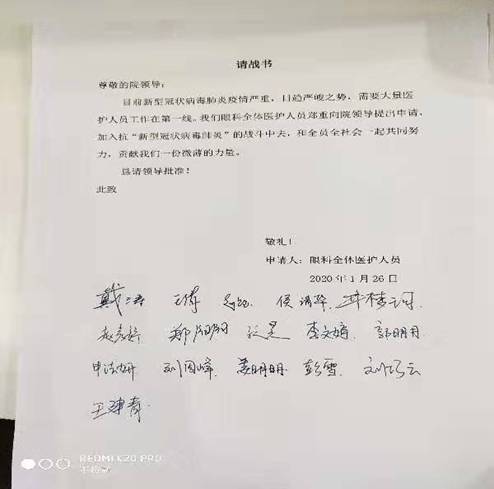 请战书
尊敬的院领导：
目前新型冠状病毒肺炎疫情严重，日趋严峻之势，需要大量医
护人员工作在第一线。我们眼科全体医护人员郑重向院领导提出申请，
加入抗“新型冠状病毒肺炎”的战斗中去，和全员全社会一起共同努
力，贡献我们一份微薄的力量。
恳请领导批准！
此致
敬礼！
申请人：眼科全体医护人员
2020年1月26日
李文婧 郭明月
刘国峰 彭雪 刘巧云
REDMI K20 PRO